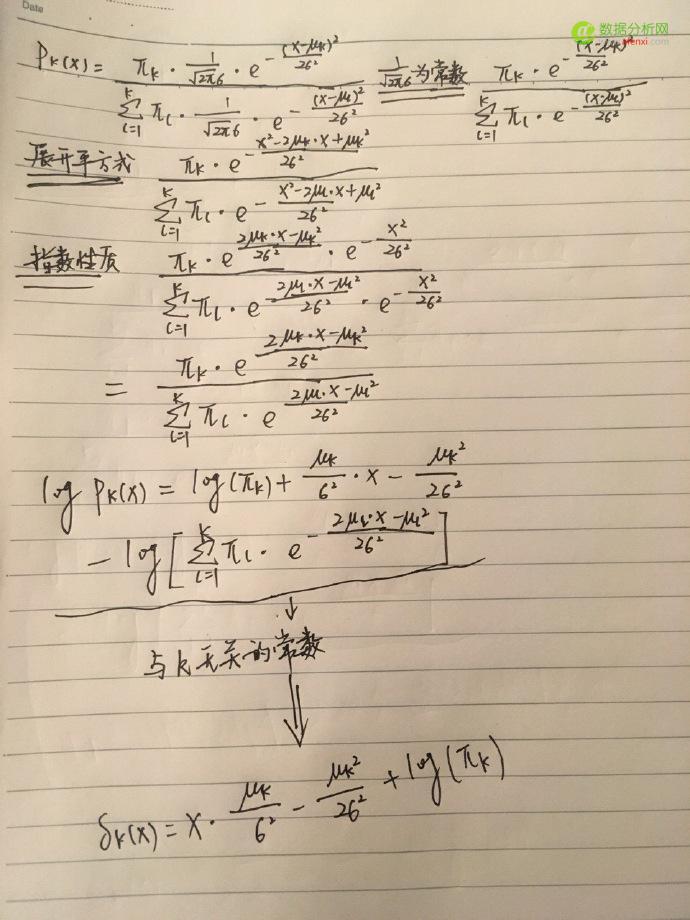 Date
数据分析网
afenxi.com
Pk(x) = πk · 1/√2π6 · e^-(x-μk)²/26² / Σ(l=1..K) πl · 1/√2π6 · e^-(x-μl)²/26² 1/√2π6 为常数 πk · e^-(x-μk)²/26² / Σ(l=1..K) πl · e^-(x-μl)²/26²
展开平方式 πk · e^-(x²-2μk·x+μk²)/26² / Σ(l=1..K) πl · e^-(x²-2μl·x+μl²)/26²
指数性质 πk · e^(2μk·x-μk²)/26² · e^-x²/26² / Σ(l=1..K) πl · e^-(2μl·x-μl²)/26² · e^-x²/26²
= πk · e^(2μk·x-μk²)/26² / Σ(l=1..K) πl · e^(2μl·x-μl²)/26²
log Pk(x) = log(πk) + μk/6² · x - μk²/26²
- log[Σ(l=1..K) πl · e^-(2μl·x-μl²)/26²]
↓
与k无关的常数
⇓
δk(x) = x · μk/6² - μk²/26² + log(πk)